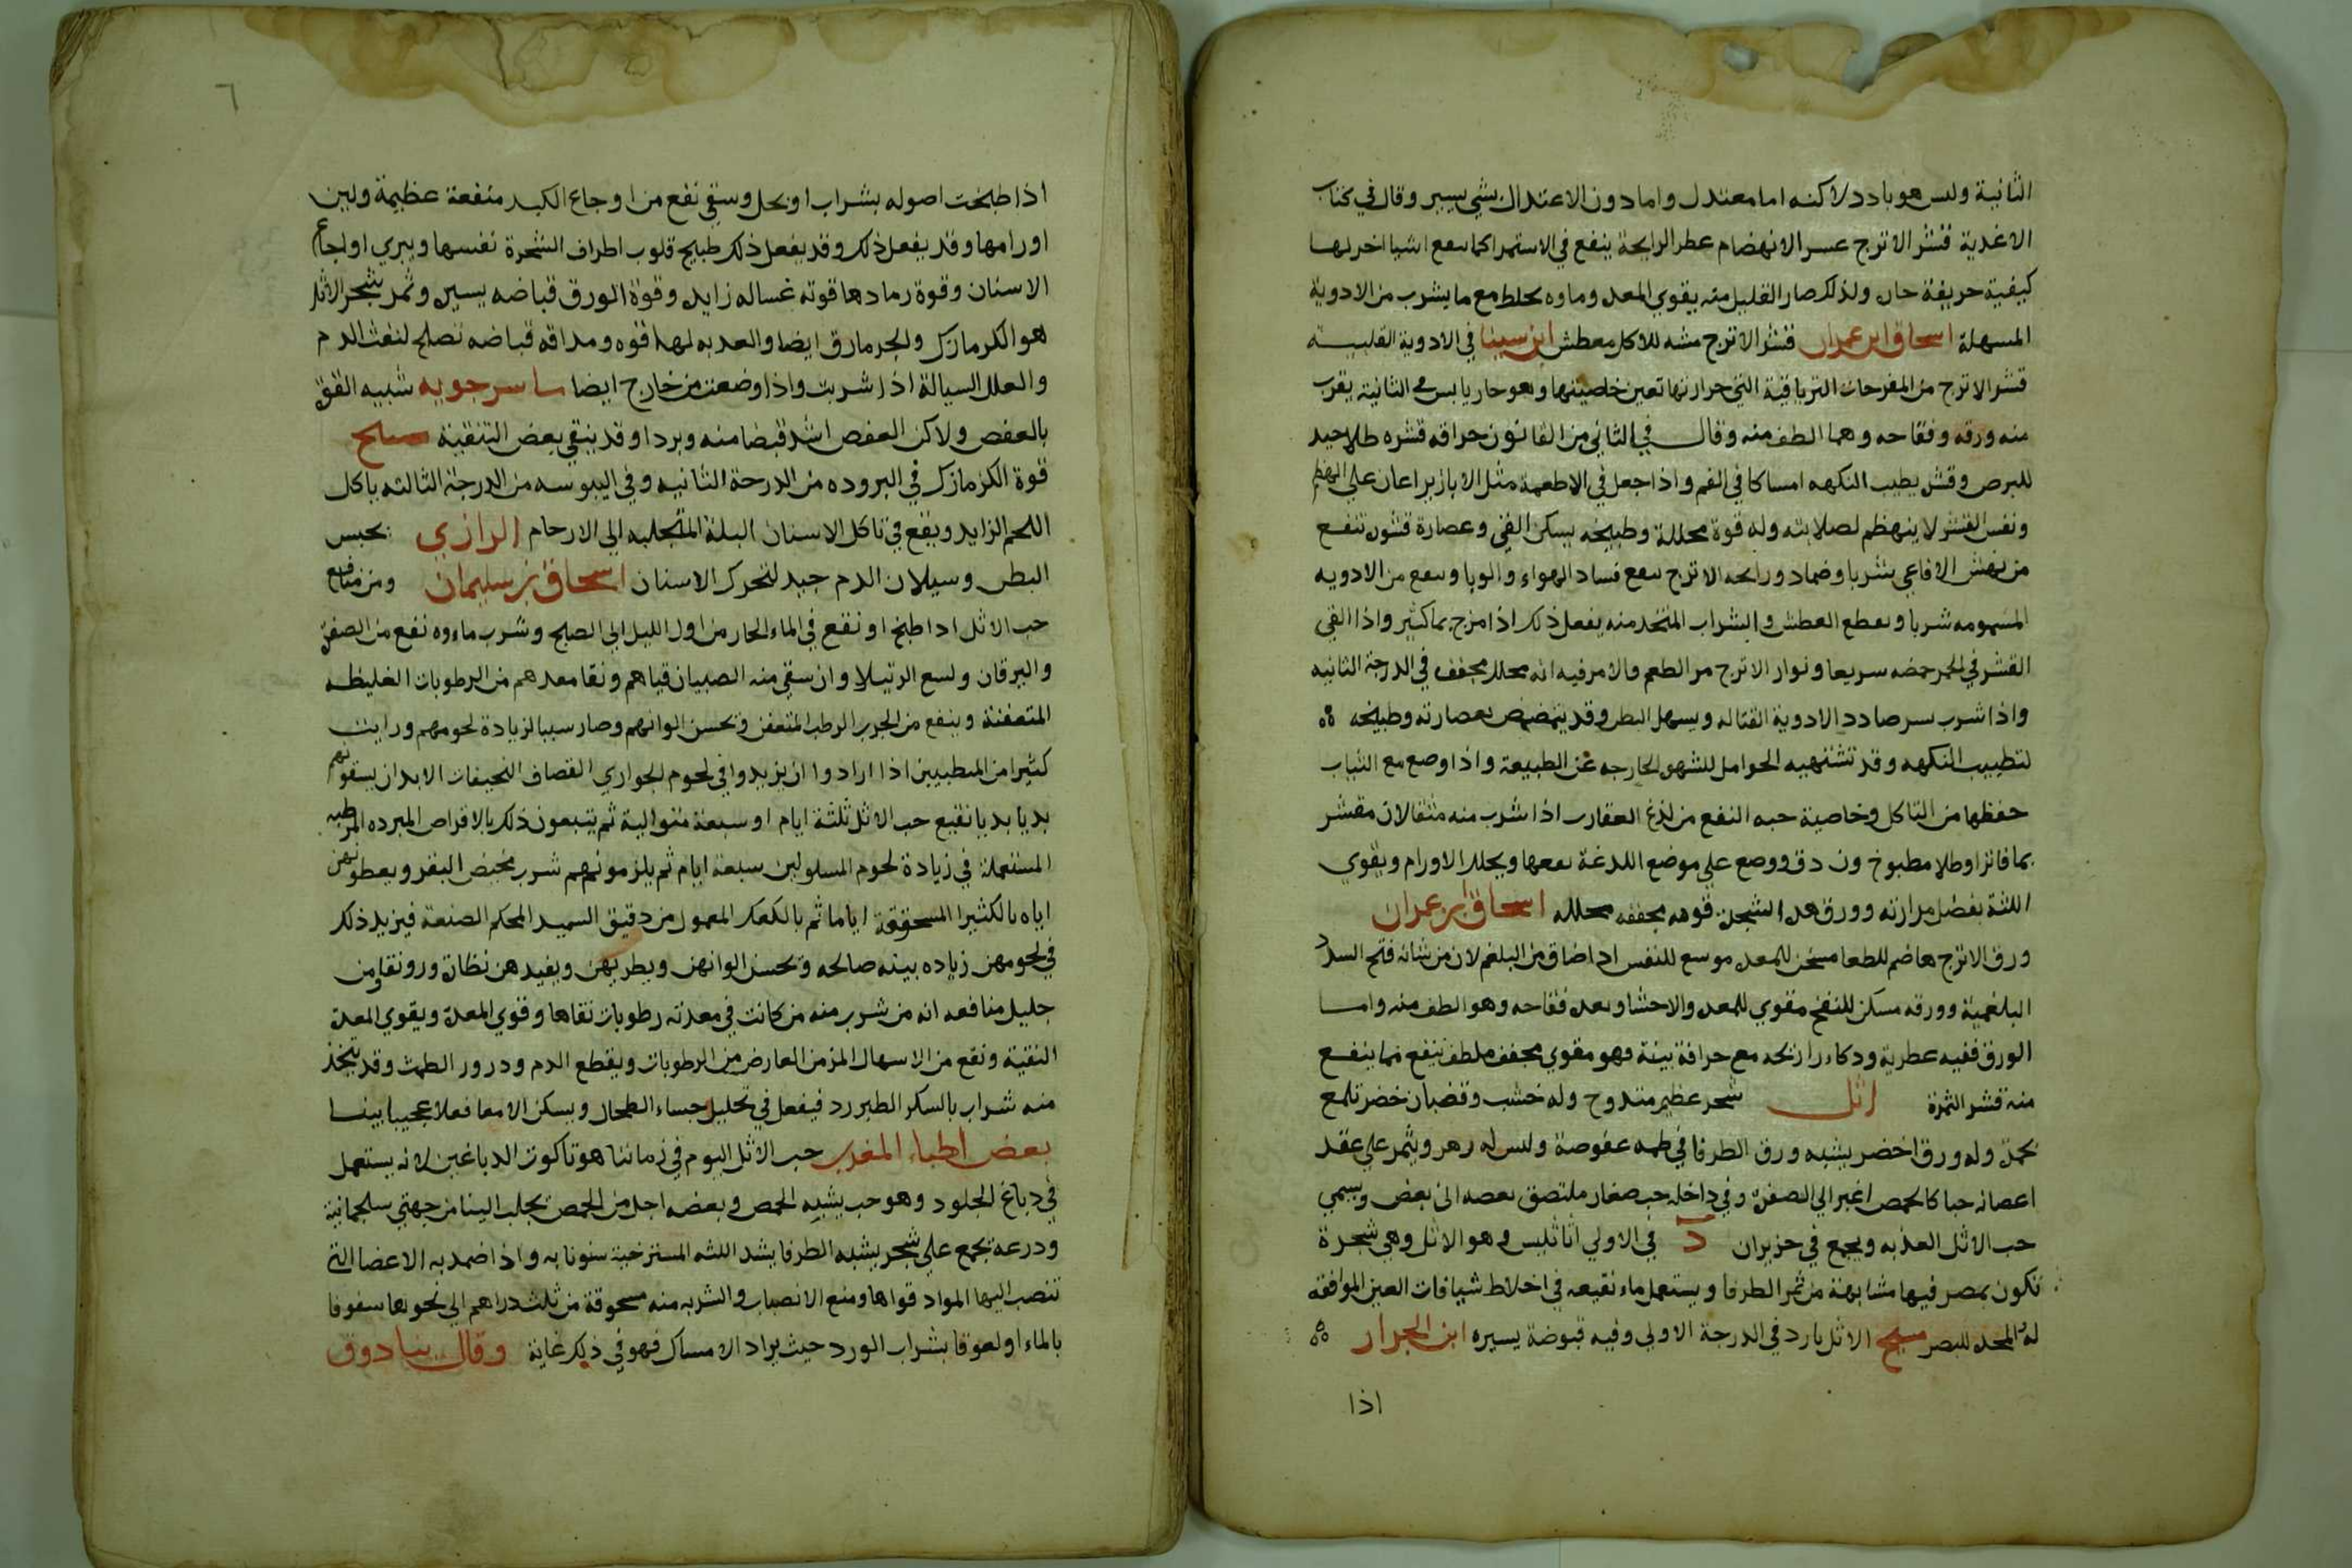 الثانية وليس هو بادد لاكنه اما معتدل واما دون الاعتدال بشي يسير وقال في كتاب
الاغدية قشر الاترج عسر الانهضام عطر الرايحة ينفع في الاستمرا كما ينفع اشيا اخر لها
كيفية حريفة حاره ولذلك صار القليل منه يقوي المعده وماوه يخلط مع ما يشرب من الادوية
المسهلة اسحاق ابن عمران قشر الاترج مشه للاكل معطش ابن سينا في الادوية القلبيه
قشر الاترج من المفرحات الترياقية التي حرارتها تعين خاصيتها وهو حار يابس في الثانية يقرب
منه ورقه وفقاحه وهما الطف منه وقال في الثاني من القانون حراقه قشره طلا جيد
للبرص وقشره يطيب النكهه امساكا في الفم واذا جعل في الاطعمة مثل الابازير اعان على الهظم
ونفس القشر لا ينهظم لصلابته وله قوة محللة وطبيخه يسكن القي وعصارة قشره تنفع
من نهش الافاعي شربا وضماد ورايحه الاترج تنفع فساد الهواء والوبا وتنفع من الادويه
المسمومه شربا ويقطع العطش والشراب المتخد منه يفعل ذلك اذا مزج بما كثير واذا القي
القشر في الخمر حمضه سريعا ونوار الاترج مر الطعم والامر فيه انه محلل مجفف في الدرجة الثانيه
واذا شرب بسر صادد الادوية القتاله ويسهل البطن وقد يتمضمض بعصارته وطبيخه
لتطييب النكهه وقد تشتهيه الحوامل للشهوه الخارجه عن الطبيعة واذا وضع مع الثياب
حفظها من التاكل وخاصية حبه النفع من لذغ العقارب اذا شرب منه مثقالان مقشر
بما فاتر او طلا مطبوخ وان دق ووضع على موضع اللدغة نفعها ويحلل الاورام ويقوي
اللثة بفضل مرارته وورق هده الشجرة قوته مجففه محلله اسحاق ابن عمران
ورق الاترج هاضم للطعا مسخن للمعده موسع للنفس ادا ضاق من البلغم لان من شانه فتح السدد
البلغمية وورقه مسكن للنفخ مقوي للمعده والاحشا وبعده فقاحه وهو الطف منه واما
الورق ففيه عطرية ودكاء رائحه مع حرافة بينة وهو مقوي مجفف ملطف ينفع مما ينفع
منه قشر الثمرة اثل شجر عظيم متدوح وله خشب وقضبان خضر تلمع
بحمرة وله ورق اخضر يشبه ورق الطرفا في طعمه عفوصة وليس له زهر ويثمر على عقد
اعصانه حبا كالحمص اغبر الى الصفره وفي داخله حب صغار ملتصق بعضه الى بعض ويسمي
حب الاثل العذبه ويجمع في حزيران د في الاولي اناثليس وهو الاثل وهي شجرة
تكون بمصر فيها مشابهة من ثمر الطرفا ويستعمل ماء نقيعه في اخلاط شيافات العين الموافقه
له المحده للبصر مسيح الاثل بارد في الدرجة الاولي وفيه قبوضة يسيره ابن الجزار
اذا
٦
اذا طبخت اصوله بشراب او بخل وسقي نفع من اوجاع الكبد منفعة عظيمة ولين
اورامها وقد يفعل ذلك وقد يفعل ذلك طبيخ قلوب اطراف الشجرة نفسها ويبري اوجاع
الاسنان وقوة رمادها قوته غساله زايده وقوة الورق قباضه يسيره وثمر شجر الاثل
هو الكرمازك والجرمازق ايضا والعدبه لهدا قوه ومداقه قباضه تصلح لنفث الدم
والعلل السيالة اذا شربت واذا وضعت من خارج ايضا ماسرجويه شبيه القوة
بالعفص ولاكن العفص اشد قبضا منه وبردا وقد ينقي بعض التنقية مسيح
قوة الكزمازك في البروده من الدرجة الثانيه وفي اليبوسه من الدرجة الثالثه ياكل
اللحم الزايد وينفع في تاكل الاسنان البلة المتحلبه الى الارحام الرازي يحبس
البطن وسيلان الدم جيد لتحرك الاسنان اسحاق بن سليمان ومن منافع
حب الاثل ادا طبخ او نقع في الماء الحار من اول الليل الى الصبح وشرب ماءوه نفع من الصفره
واليرقان ولسع الرتيلا وان سقي منه الصبيان قياهم ونقا معدهم من الرطوبات الغليظه
المتعفنة وينفع من الجرب الرطب المتعفن وتحسن الوانهم وصار سببا لزيادة لحومهم ورايت
كثيرا من المتطببين اذا ارادوا ان يزيدوا في لحوم الجواري القصاف النحيفات الابدان يسقونهم
بديا بديا نقيع حب الاثل ثلثة ايام او سبعة متوالية ثم يتبعون ذلك بالاقراص المبرده المرطبه
المستعملة في زيادة لحوم المسلولين سبعة ايام ثم يلزمونهم شرب مخيض البقر ويعطونهن
اياه بالكثيرا المسحوقة اياما ثم بالكعك المعمول من دقيق السميد المحكم الصنعة فيزيد ذلك
في لحومهن زياده بينه صالحه وتحسن الوانهن ويطريهن ويفيدهن نظارة ورونقا ومن
جليل منافعه انه من شرب منه من كانت في معدته رطوبات نقاها وقوي المعدة ويقوي المعدة
النقية ونفع من الاسهال المزمن العارض من الرطوبات ويقطع الدم ودرور الطمث وقد يتخذ
منه شراب بالسكر الطبرزد فيفعل في تحليل جساء الطحال ويسكن الامعا فعلا عجيبا بينا
بعض اطباء المغرب حب الاثل اليوم في زماننا هو تاكوت الدباغين لانه يستعمل
في دباغ الجلود وهو حب يشبه الحمص وبعضه اجل من الحمص يجلب الينا من جهتي سلجمانية
ودرعة يجمع على شجر يشبه الطرفا يشد اللثه المسترخية سنونا به واذا ضمد به الاعضا التي
تنصب اليها المواد قواها ومنع الانصباب والشربه منه مسحوقة من ثلثة دراهم الى نحوها سفوفا
بالماء او لعوقا بشراب الورد حيث يراد الامساك فهو في ذلك غاية وقال بنادوق